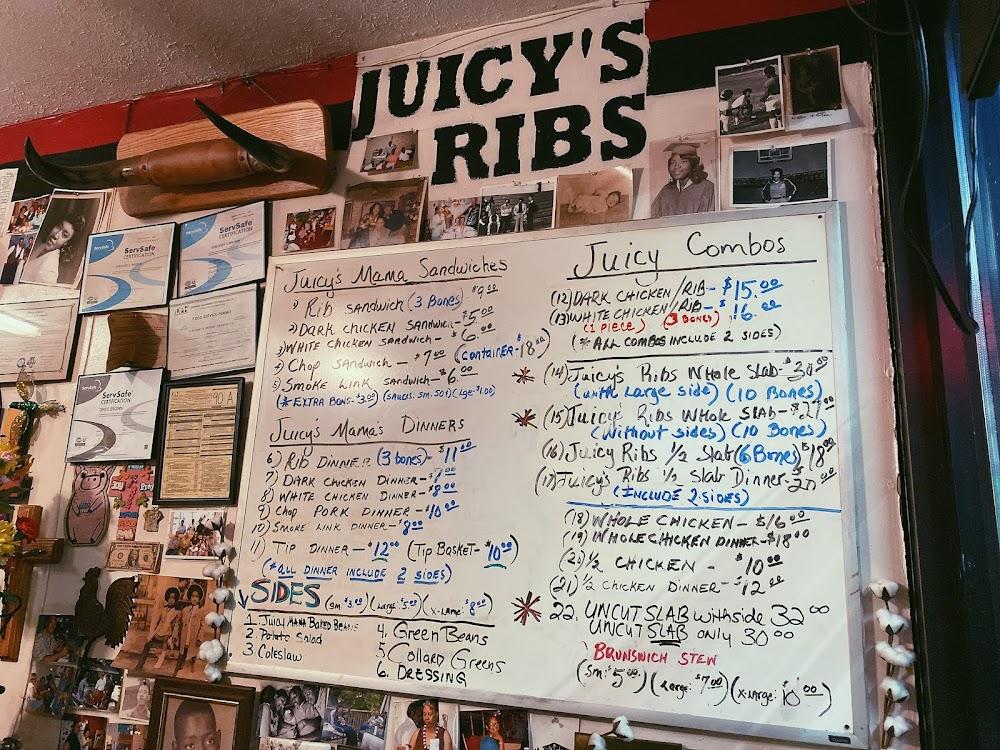 JUICY'S
RIBS
ServSafe
CERTIFICATION
ServSafe
CERTIFICATION
ServSafe
CERTIFICATION
90 A
Juicy's Mama Sandwiches
1) Rib sandwich (3 Bones) $9.00
2) Dark chicken sandwich - $5.00
3) White chicken sandwich - $6.00
4) Chop sandwich - $7.00 (container - $18.00)
5) Smoke link sandwich - $6.00
Juicy's Mama's Dinners
6) Rib Dinner (3 bones) - $11.00
7) Dark chicken Dinner -
8) White chicken Dinner - $8.00
9) Chop Pork Dinner - $10.00
10) Smoke link Dinner - $8.00
11) Tip Dinner - $12.00 (Tip Basket - $10.00)
(* All Dinner include 2 sides)
SIDES (sm $3.00) (Large $5.00) (X-Large $8.00)
1. Juicy Mama Baked Beans
2. Potato Salad
3 Coleslaw
4. Green Beans
5 Collard Greens
6. Dressing
Juicy Combos
(12) Dark chicken/Rib - $15.00
(13) White chicken/Rib - $16.00
(1 piece) (3 Bones)
(* All combos include 2 sides)
* (14) Juicy's Ribs Whole Slab -
(with Large side) (10 Bones)
* (15) Juicy's Ribs Whole Slab - $27.00
(without sides) (10 Bones)
(16) Juicy Ribs 1/2 Slab (6 Bones) $18.00
(17) Juicy's Ribs 1/2 Slab Dinner -
(Include 2 sides)
(18) Whole Chicken - $16.00
(19) Whole Chicken Dinner - $18.00
(20) 1/2 Chicken - $10.00
(21) 1/2 Chicken Dinner - $12.00
* 22. Uncut Slab with side 32.00
Uncut Slab only 30.00
Brunswich Stew
(Sm: $5.00) (Large: $7.00) (X-Large: $10.00)